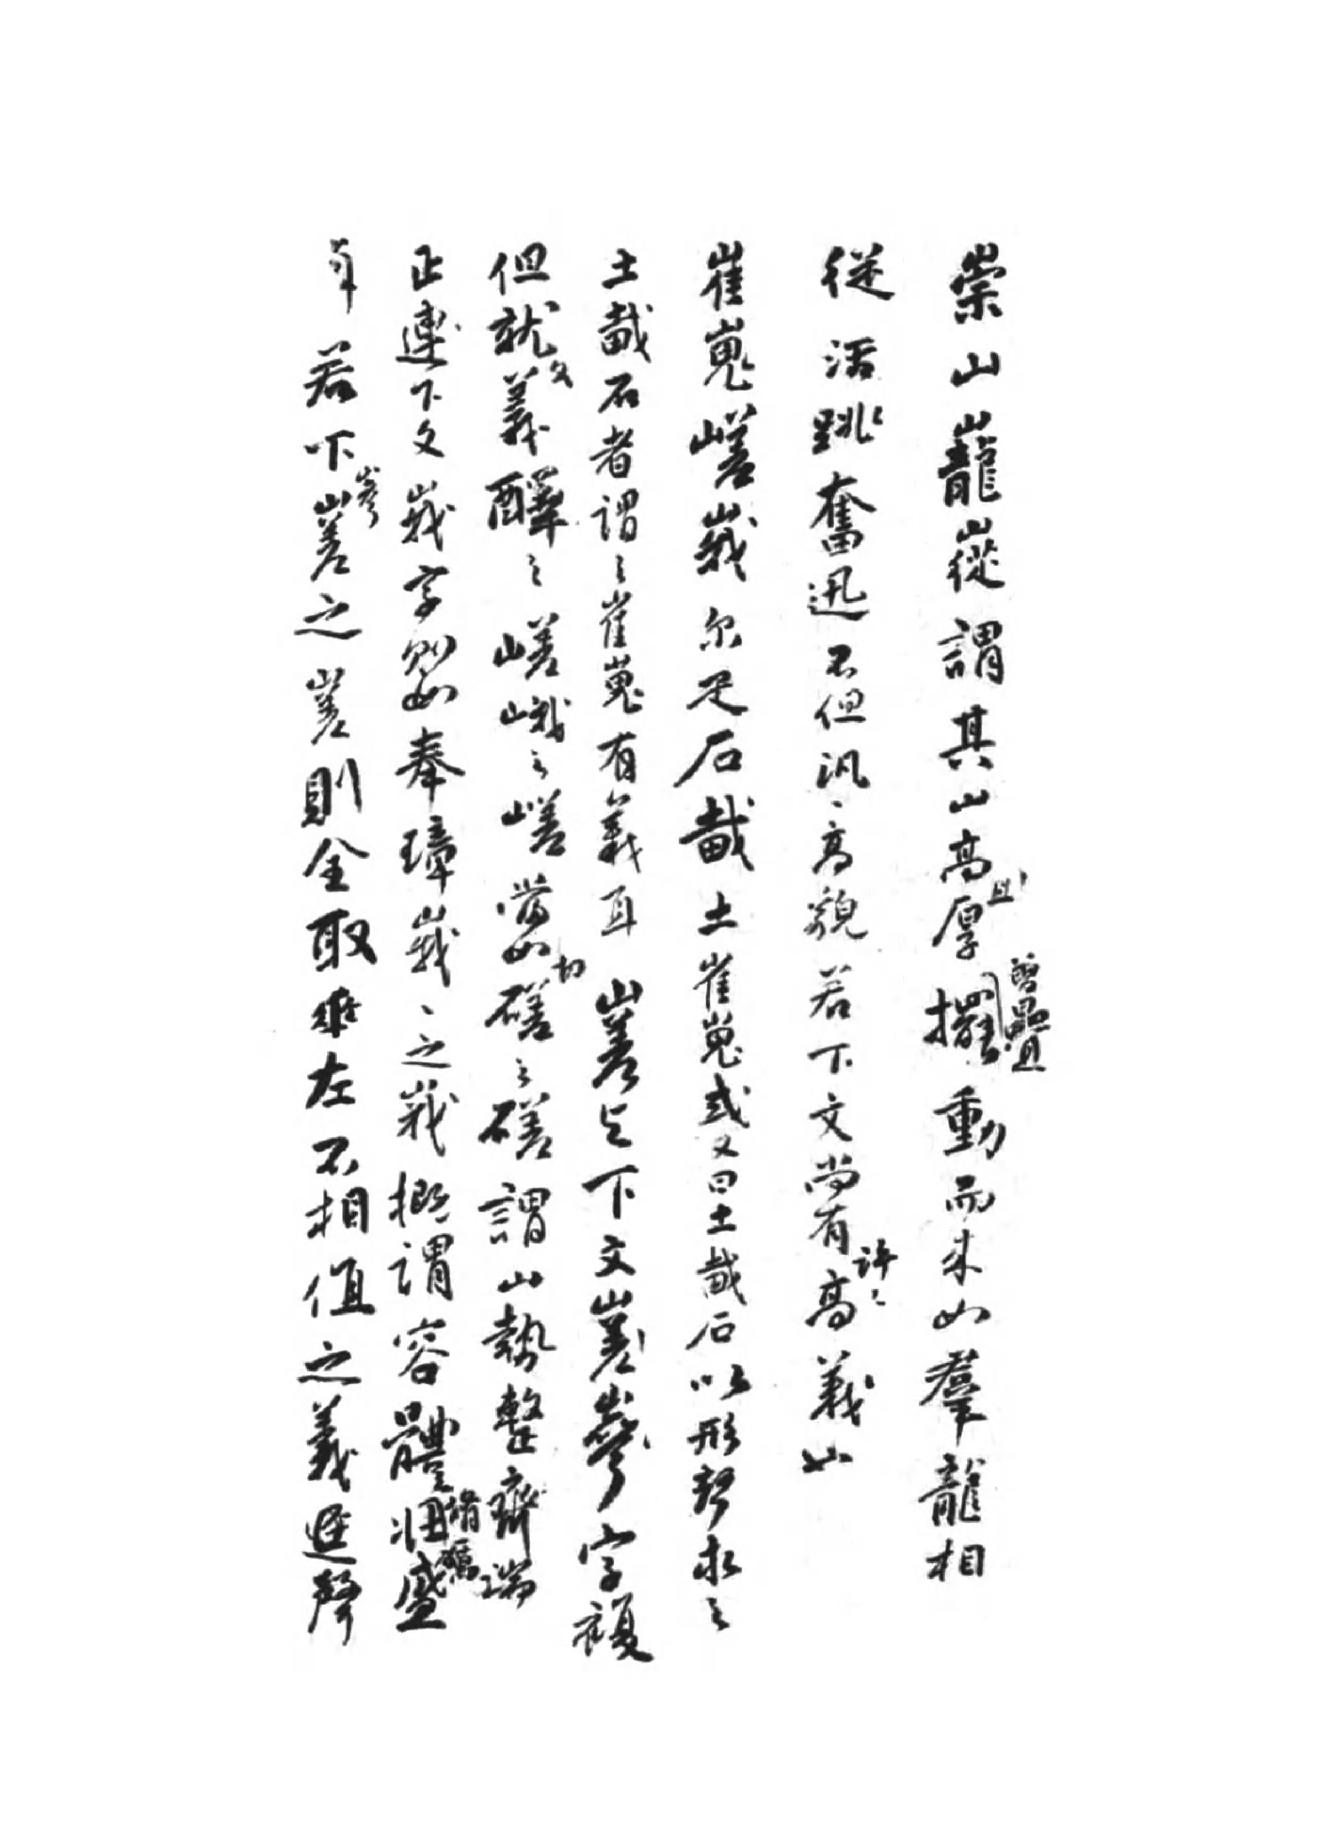 崇山巃嵸謂其山高且厚曾疊擺動而来如羣龍相
從活跳奮迅不但汎〻高貌若下文尚有許〻高義如
崔嵬嵯峩尔疋石戴土崔嵬或又曰土戴石以形聲求之
土戴石者謂之崔嵬有義耳嵳與下文嵳嵾字複
但就文義釋之嵯峨之嵯當如切磋之磋謂山勢整齊端
正連下文峩字則如奉璋峩〻之峩概謂容體壯盛
若下嵾嵳之嵳則全取左不相值之義遲聲